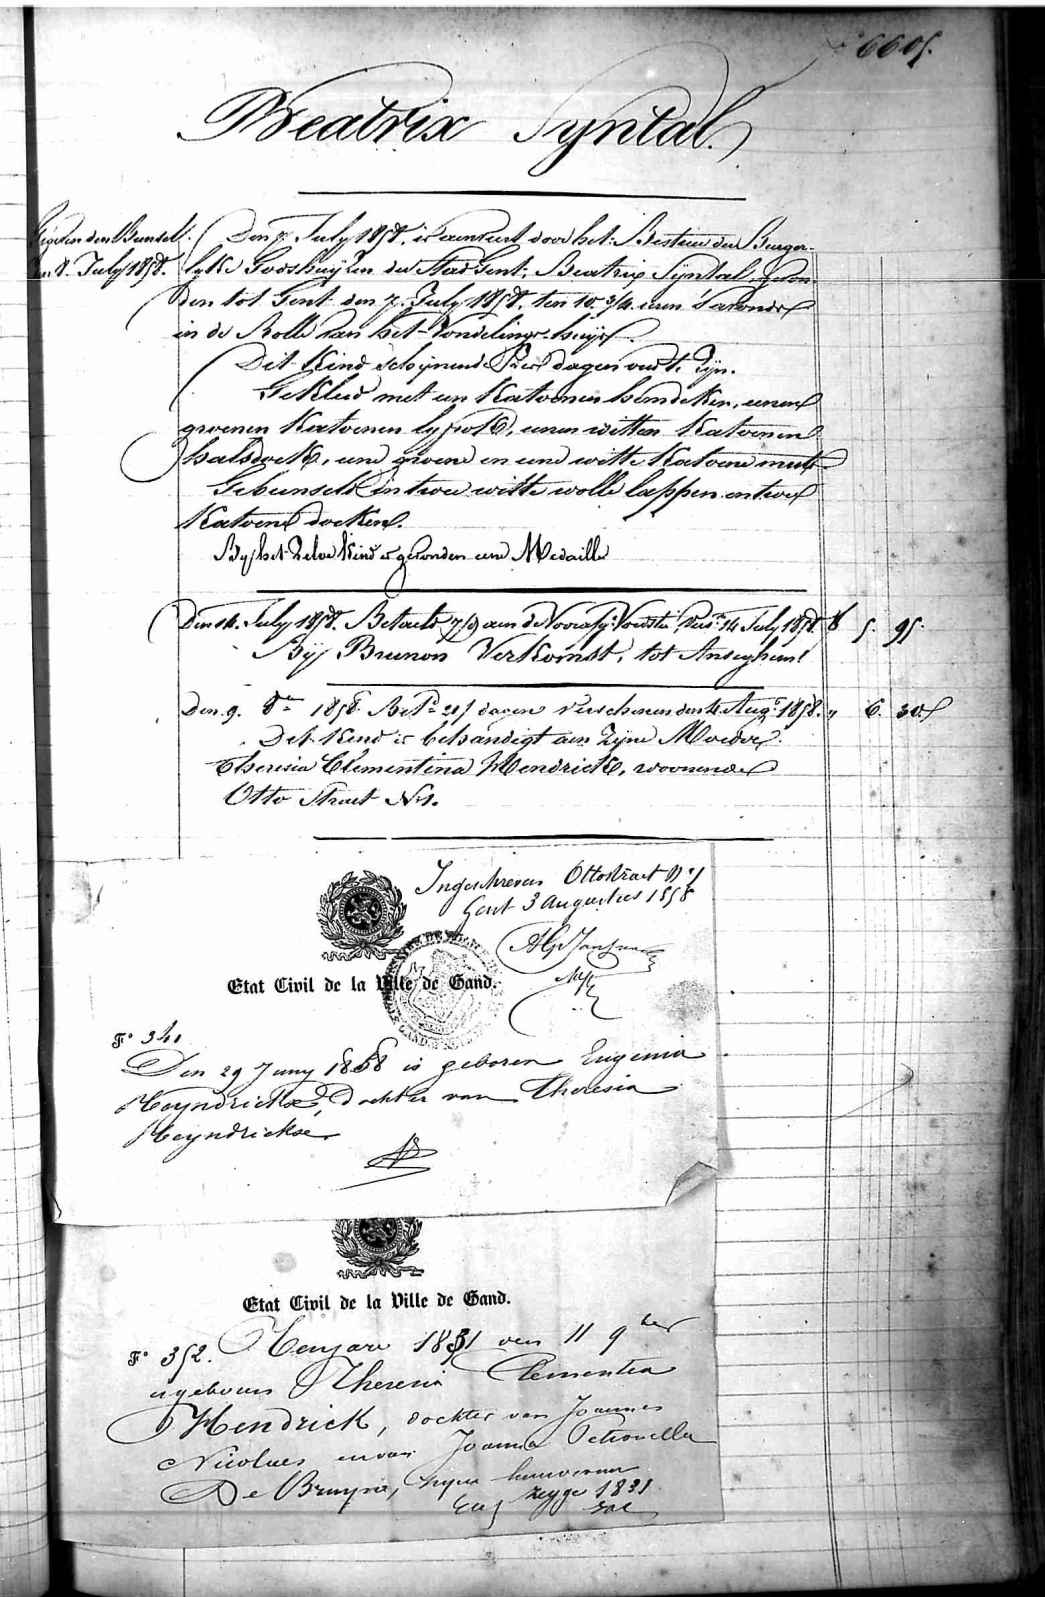 6605.
Beatrix Syntal.
Gegeven den Bunsel
den 8. July 1858.
Den 7. July 1858. is aenveert door het Bestier der Burger-
lyke Godshuyzen der Stad Gent, Beatrix Syntal, gevon-
den tot Gent den 7. July 1858. ten 10. 3/4. uren 's avonds
in de Rolle van het Vondelings-huys.
Dit Kind schynende dagen oud te zyn.
Gekleed met een Katoenen hemdeken, eenen
groenen Katoenen lyfrok, eenen witten Katoenen
halsdoek, eene groene en eene witte Katoene muts
Gebunselt in twee witte wolle lappen en twee
Katoene doeken.
By het zelve Kind is gevonden eene Medaille
Den 14. July 1858. Betaelt 7/9 aen de Voorsz: Voedste Vers: 14 July 1858. 5. 95.
By Brunon Verkomst, tot Anseghem
Den 9. 1858. Bet. 21/ dagen verschenen den 4. Aug. 1858. 6. 30.
Det Kind is behandigt aen zyne Moeder
Theresia Clementina Hendrick, woonende
Otto Straet N 1.
Ingeschreven Ottostraet N 1
Gent 3 augustus 1858
Etat Civil de la Ville de Gand.
F° 341
Den 29 Juny 1858 is geboren Eugenia
Heyndrickse, dochter van Theresia
Heyndrickse
Etat Civil de la Ville de Gand.
F° 352. Ten jare 1831 den 11 9ber
is geboren Theresia Clementia
Hendrick, dochter van Joannes
Nicolaes en van Joanna Petronella
De Bruyne, zyne huisvrouw
zegge 1831